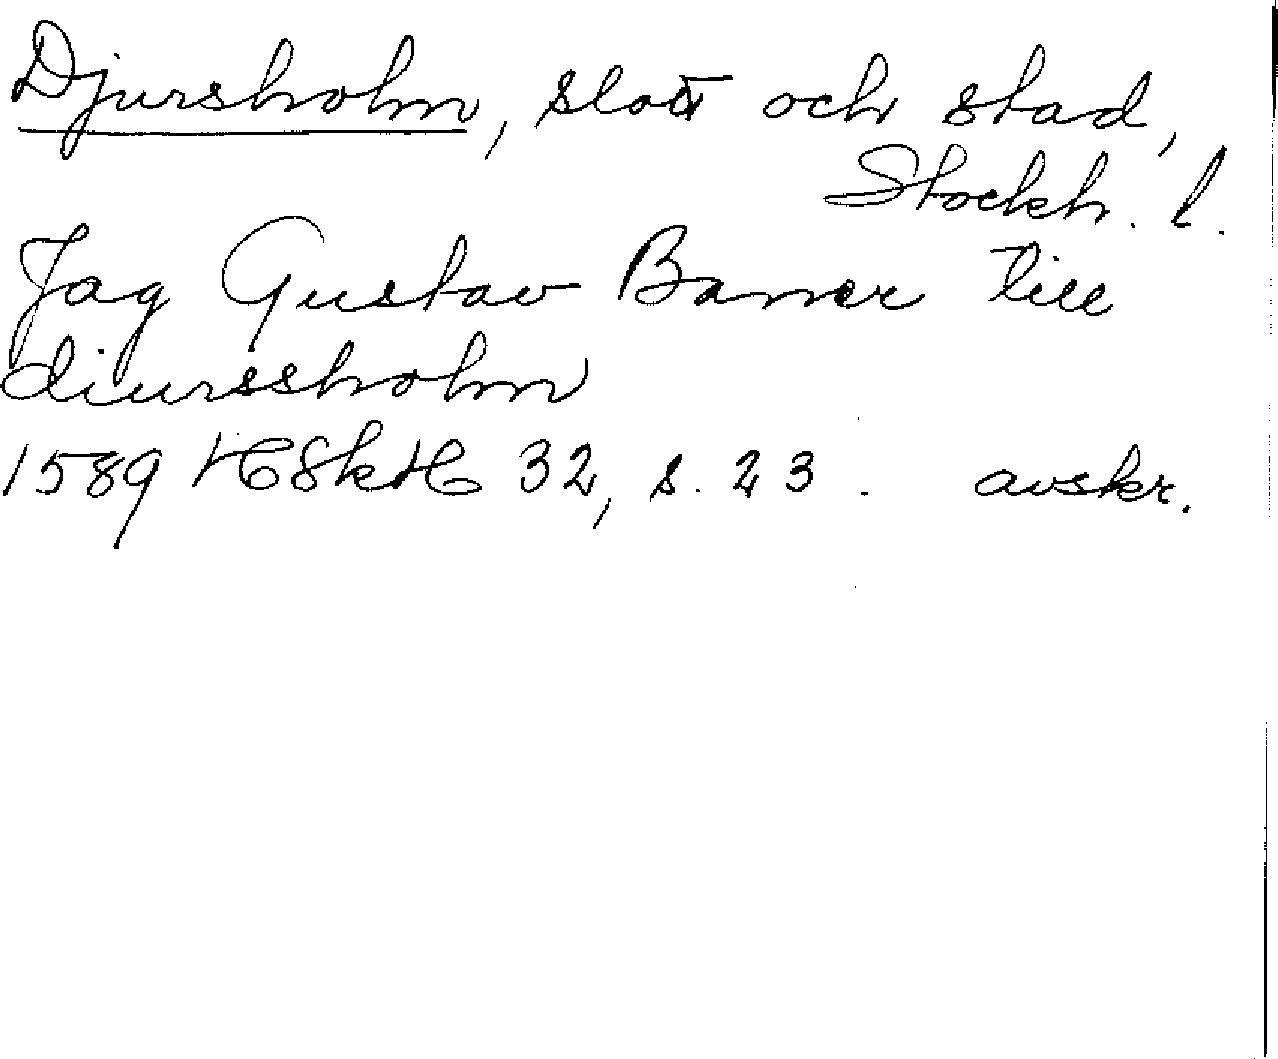 Djursholm, slott och stad,
Stockh. l.
Jag Gustav Baner till
diurssholm
1589 HSkH 32, s. 23. avskr.